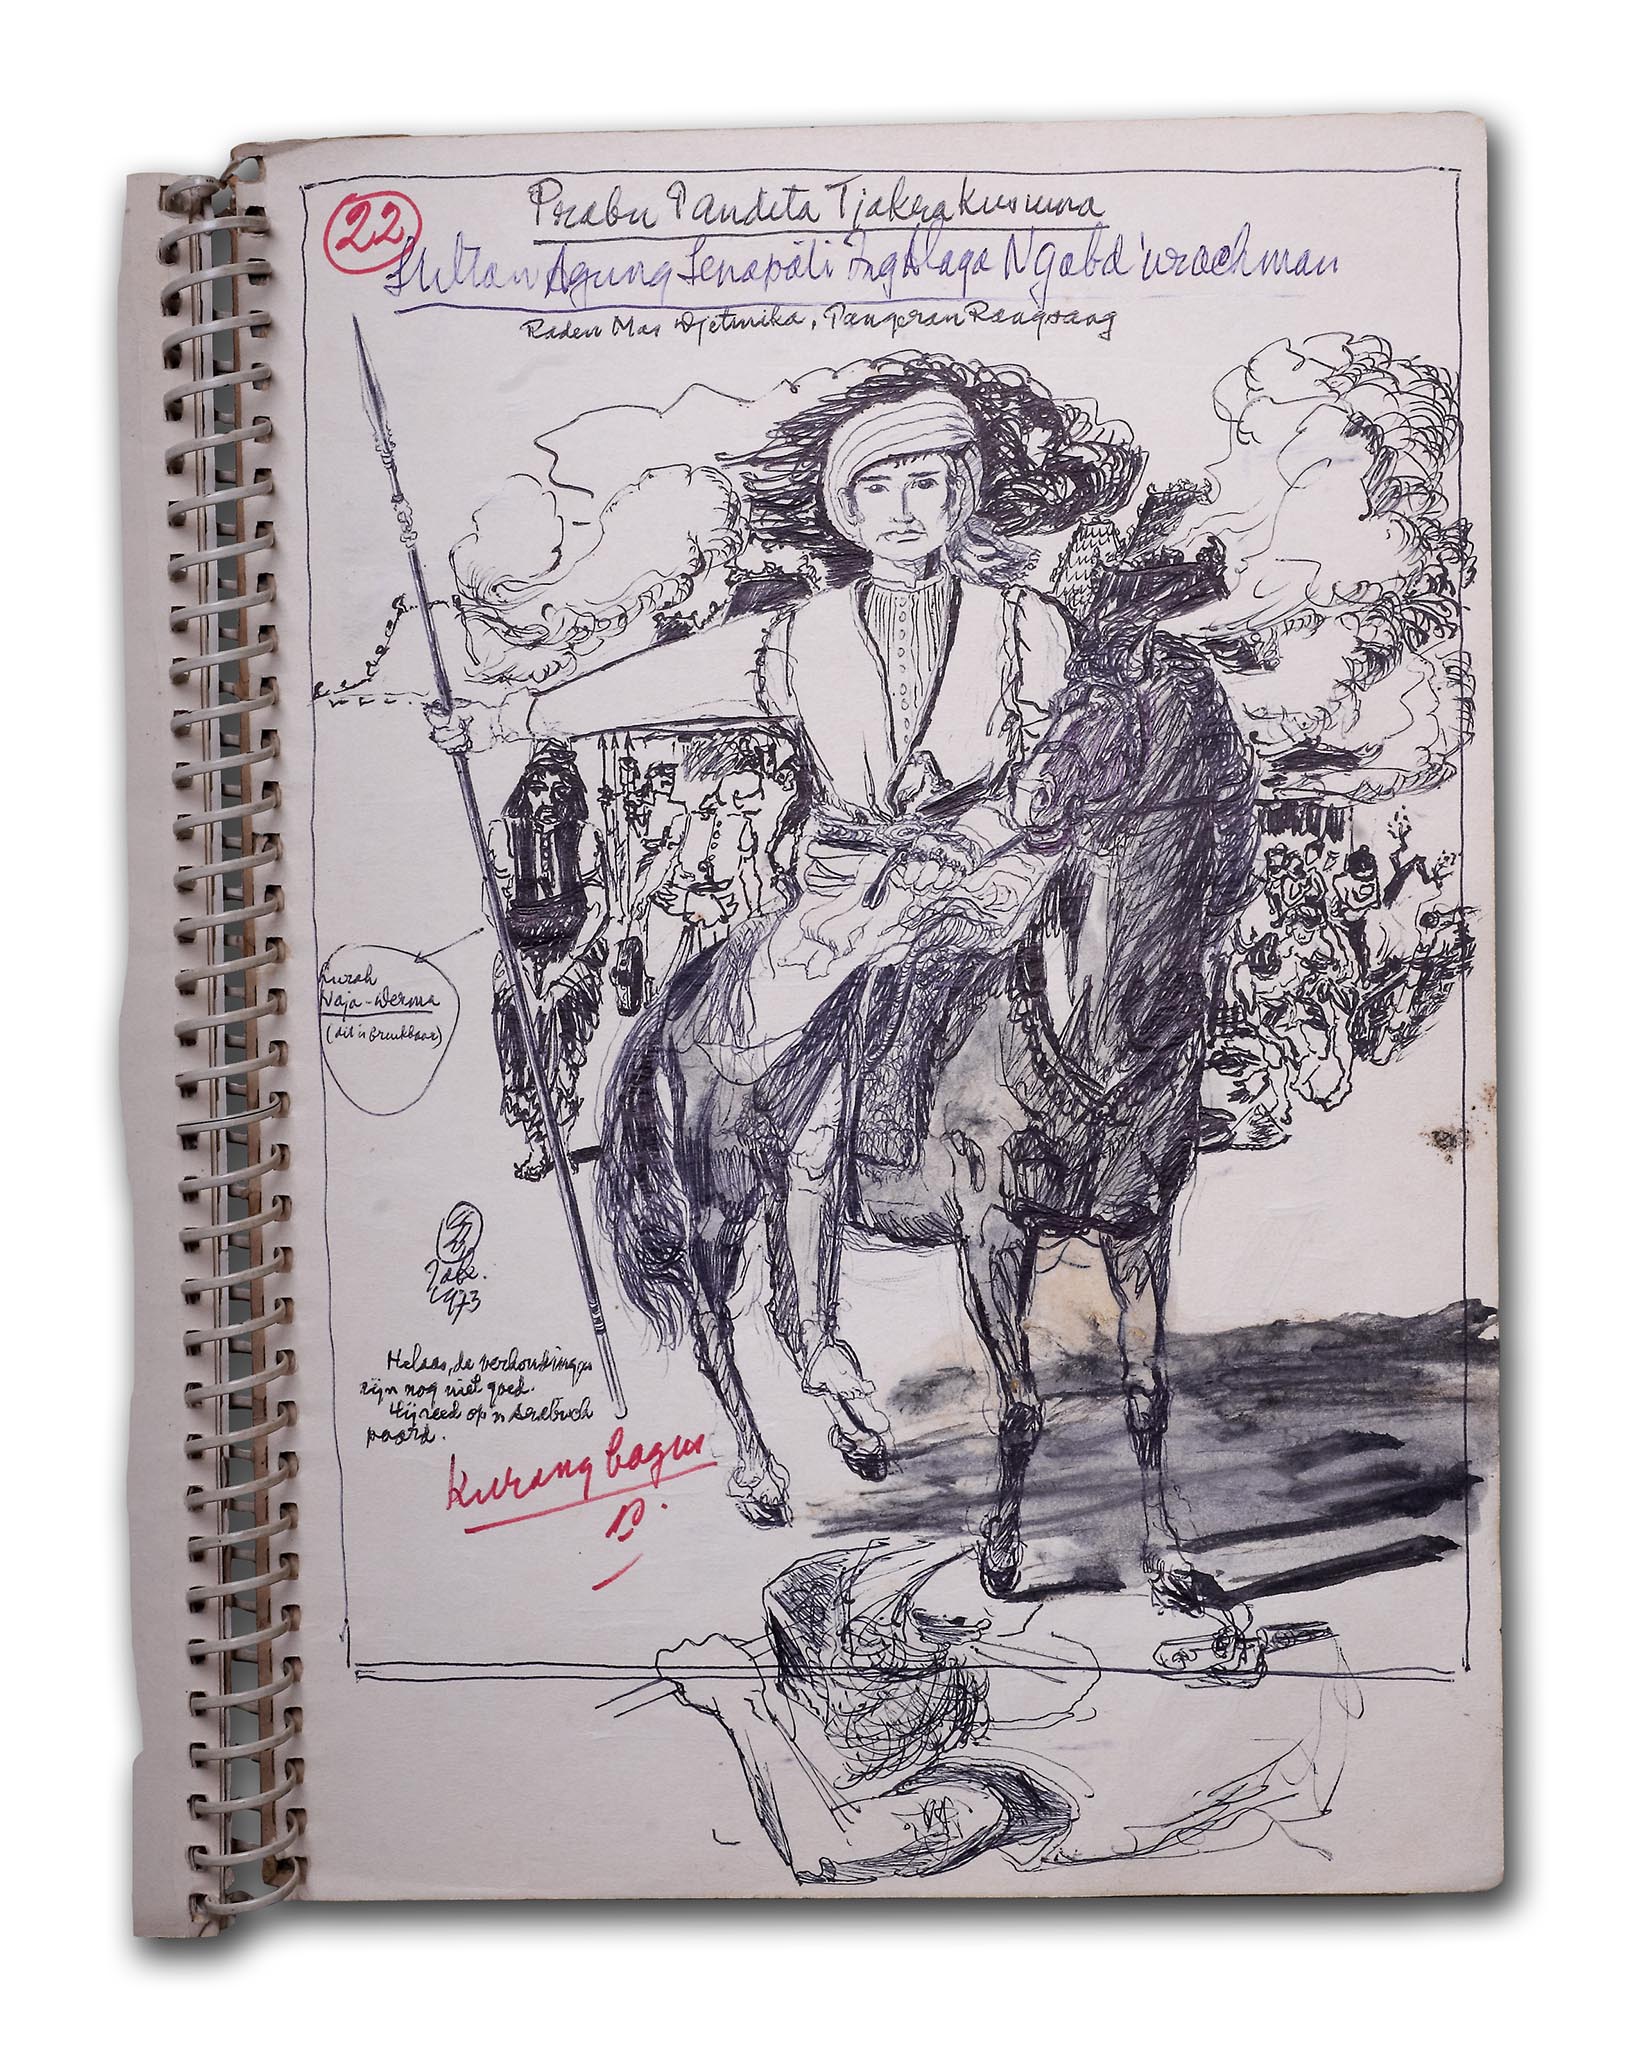 22
Prabu Pandita Tjakra Kusuma
Sultan Agung Senapati Ing Alaga Ngabd'urachman
Raden Mas Djetmika, Pangeran Rangsang
Lurah
Naja-Werma
(dit is bruikbaar)
1973
Helaas, de verhoudingen
zijn nog niet goed.
Hij reed op 'n Arabisch
paard.
Kurang bagus